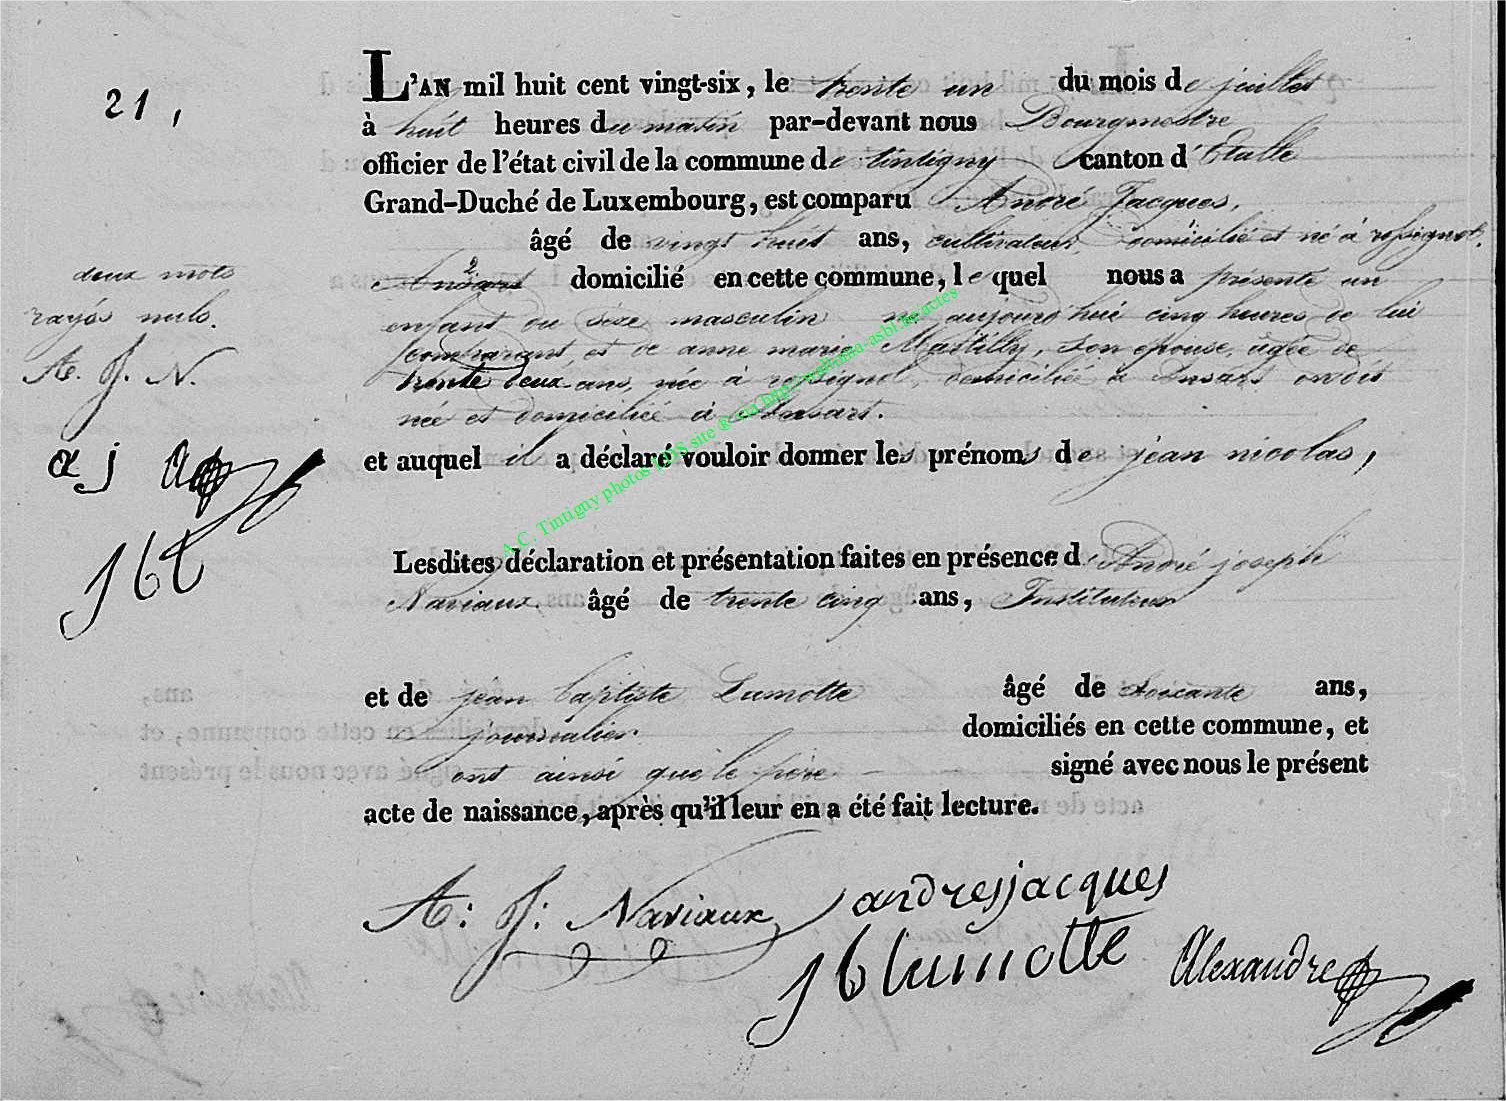 21,
L'AN mil huit cent vingt-six, le trente un du mois de juillet
à huit heures du matin par-devant nous Bourgmestre
officier de l'état civil de la commune de tintigny canton d'Etalle
Grand-Duché de Luxembourg, est comparu André Jacques,
âgé de vingt huit ans, cultivateur, domicilié et né à rossignol,
Ansart domicilié en cette commune, lequel nous a présenté un
enfant du sexe masculin né aujourd'hui cinq heures de lui
comparant, et de anne marie son epouse, agée de
trente deux ans, née à rossignol, domiciliée à Ansart
née et domiciliée à Ansart.
deux mots
rayés nuls.
A. J. N.
a j
J b l
et auquel il a déclaré vouloir donner les prénoms de jean nicolas,
Lesdites déclaration et présentation faites en présence d'André joseph
Naviaux. âgé de trente cinq ans, Instituteur
et de jean baptiste Lumotte âgé de soixante ans,
journalier domiciliés en cette commune, et
ont ainsi que le père signé avec nous le présent
acte de naissance, après qu'il leur en a été fait lecture.
A: J: Naviaux andresjacques
J b lumotte Alexandre
A.C. Tintigny photos LDS site ® via http://wallonia-asbl.be/actes